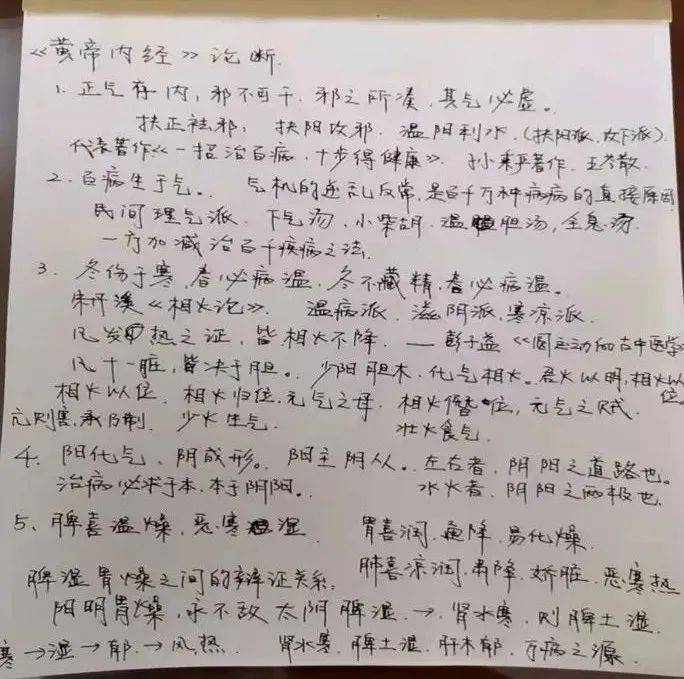 《黄帝内经》论断.
1. 正气存内，邪不可干，邪之所凑，其气必虚。
扶正祛邪； 扶阳攻邪. 温阳利水，(扶阳派、攻下派).
代表著作《一招治百病，十步得健康》. 孙秉严著作. 王芩散.
2. 百病生于气。. 气机的逆乱反常，是百千万种病病的直接原因
民间理气派. 下气汤，小柴胡. 温胆汤，全息汤.
一方加减治百千疾病之法.
3. 冬伤于寒，春必病温，冬不藏精，春必病温。
朱丹溪《相火论》. 温病派. 滋阴派、寒凉派.
凡发热之证，皆相火不降. — 彭子益《圆运动的古中医学》
凡十一脏，皆决于胆。. 少阳胆木，化气相火。君火以明，相火以位。
相火以位. 相火归位，元气之母. 相火僭位，元气之贼.
亢则害，承乃制. 少火生气. 壮火食气.
4. 阳化气、阴成形。. 阳主阴从。. 左右者，阴阳之道路也。
治病必求于本，本于阴阳。. 水火者，阴阳之两极也.
5、脾喜温燥，恶寒湿 胃喜润，通降，易化燥.
脾湿胃燥之间的辩证关系. 肺喜凉润，肃降，娇脏，恶寒热
阳明胃燥，永不敌太阴脾湿. → 肾水寒，则脾土湿.
寒→湿→郁→风热. 肾水寒，脾土湿，肝木郁，百病之源.